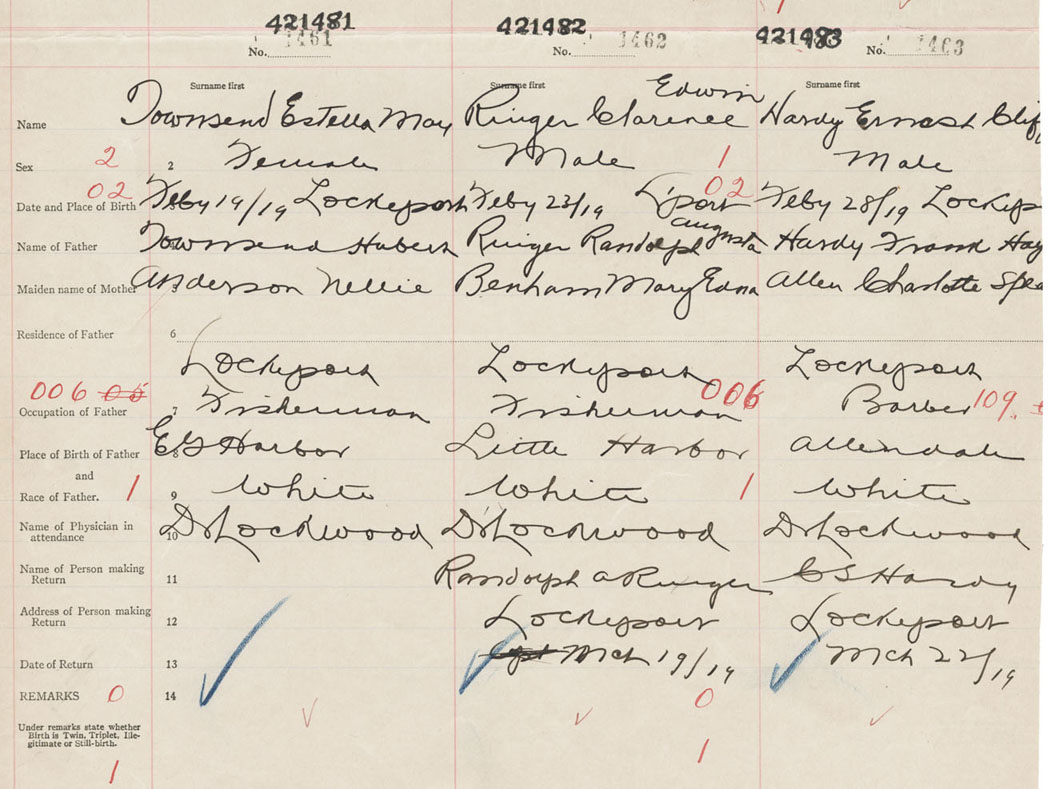 421481 421482 421483
No. 1461 No. 1462 No. 1463
Surname first Surname first Surname first
Edwin
Name Townsend Estella May Ringer Clarence Hardy Ernest Clif
Sex 2 2 Female Male 1 Male
02 02
Date and Place of Birth 3 Feby 19/19 Lockeport Feby 23/19 L'port Feby 28/19 Lockep
Augusta
Name of Father Townsend Hubert Ringer Randolph Hardy Frank Hay
Maiden name of Mother 5 Anderson Nellie Benham Mary Edna Allen Charlotte Spea
Residence of Father 6
Lockeport Lockeport Lockeport
006 06 006 109.
Occupation of Father 7 Fisherman Fisherman Barber
Place of Birth of Father 8 E G Harbor Little Harbor Allendale
and
Race of Father. 1 9 White White 1 White
Name of Physician in
attendance 10 Dr Lockwood Dr Lockwood Dr Lockwood
Name of Person making
Return 11 Randolph A Ringer C S Hardy
Address of Person making
Return 12 Lockeport Lockeport
Date of Return 13 Mch 19/19 Mch 22/19
REMARKS 0 14 0
Under remarks state whether
Birth is Twin, Triplet, Ille-
gitimate or Still-birth.
1 1